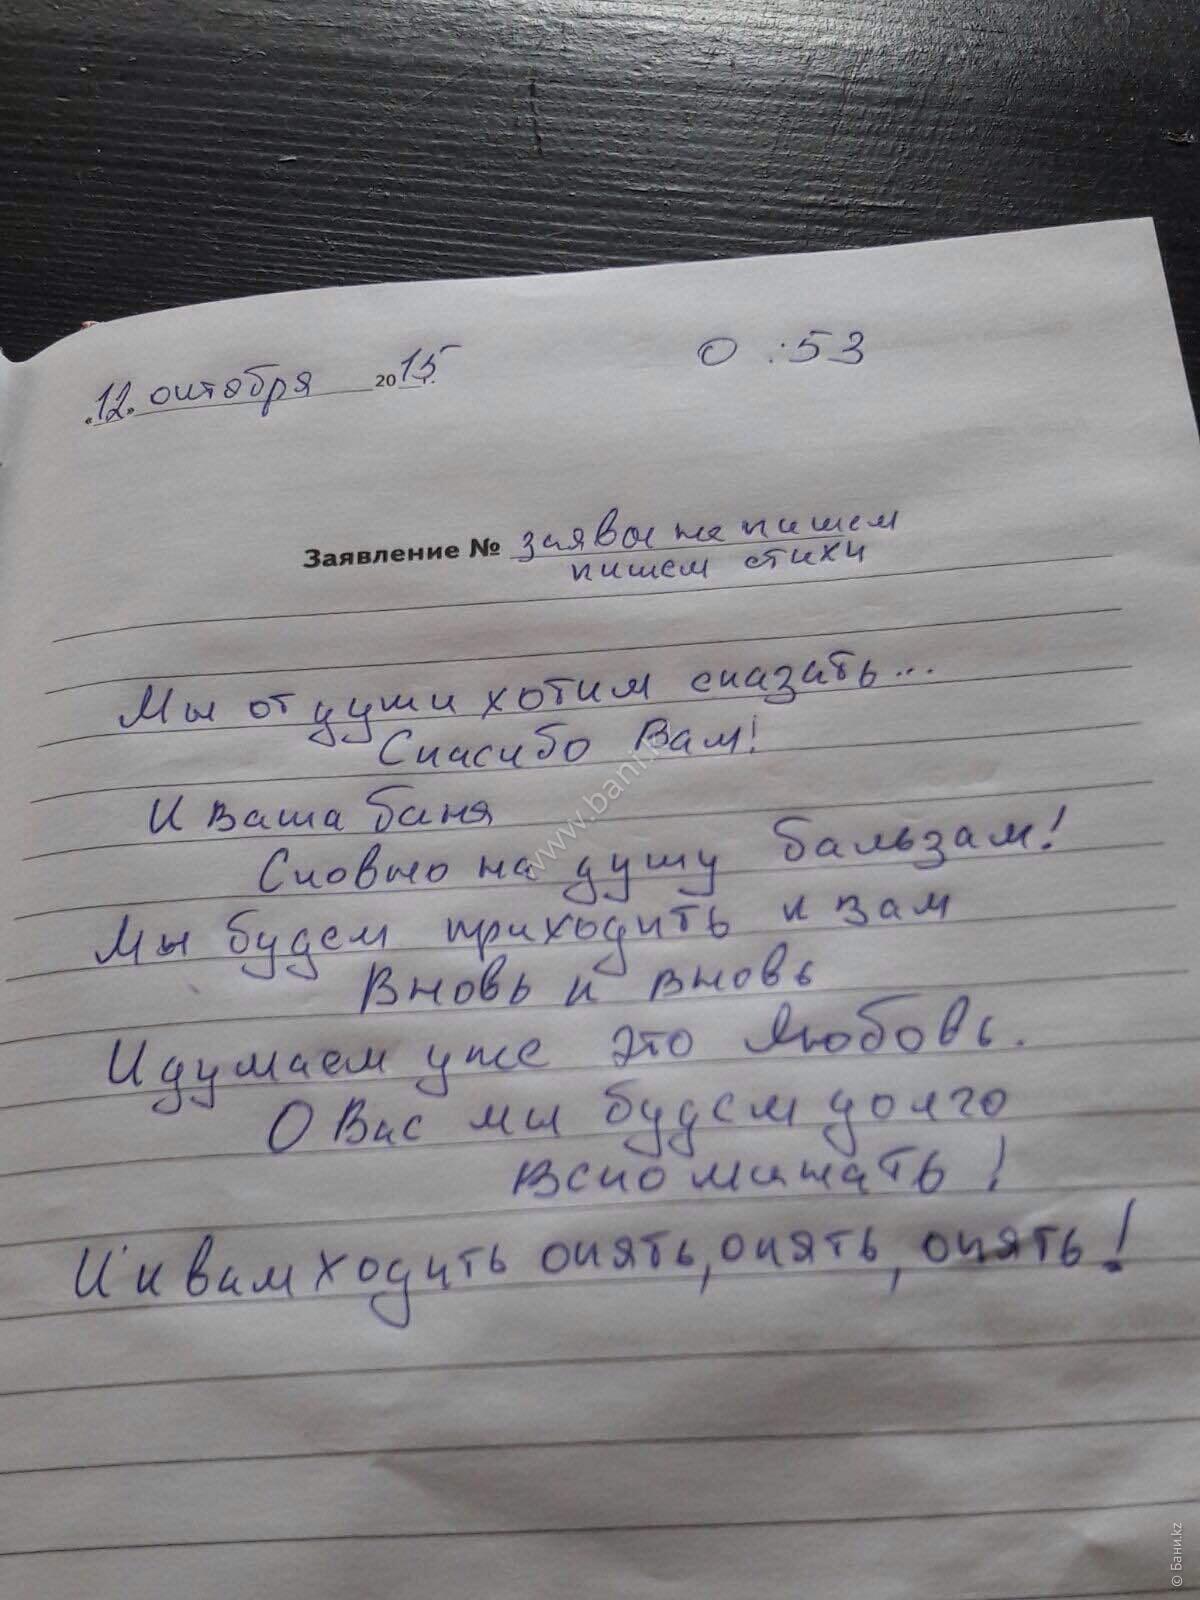 «12» октября 2015. 0:53
Заявление № заявы не пишем
пишем стихи
Мы от души хотим сказать...
Спасибо Вам!
И Ваша баня
Словно на душу бальзам!
Мы будем приходить к вам
Вновь и вновь
И думаем уже это любовь.
О Вас мы будем долго
вспоминать!
И к вам ходить опять, опять, опять!
www.bani.
© Бани.kz